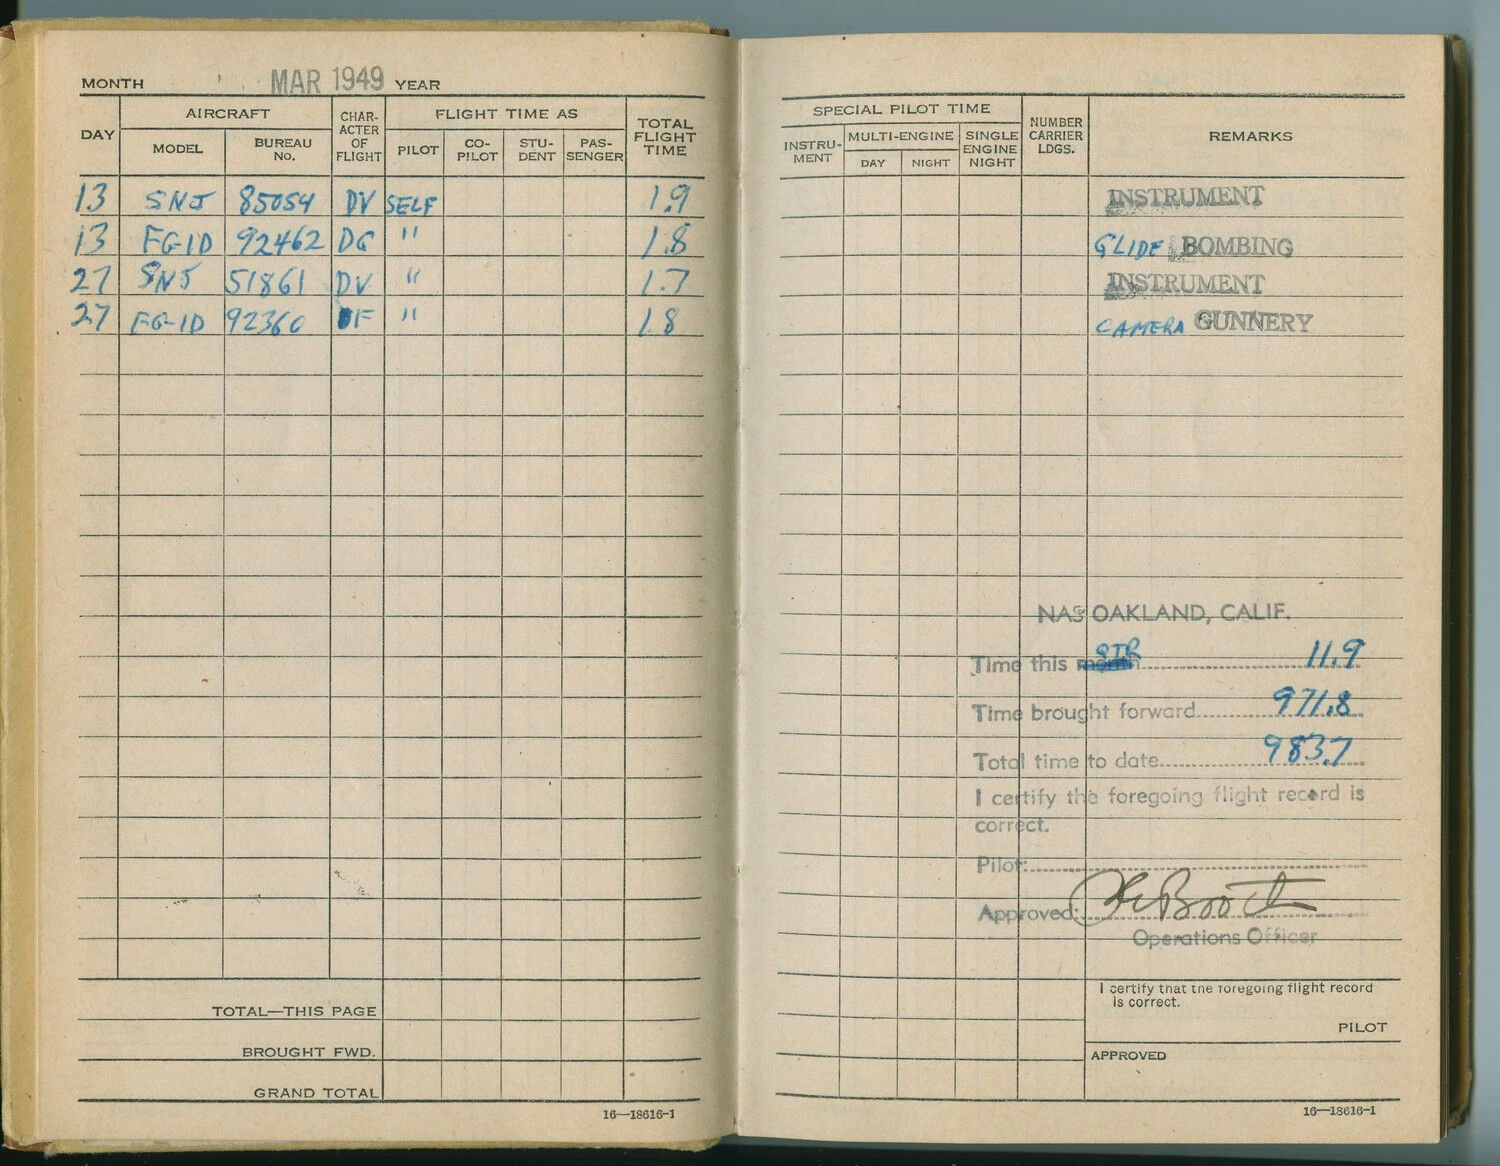 MONTH MAR 1949 YEAR
DAY
AIRCRAFT
MODEL
BUREAU No.
CHAR-ACTER OF FLIGHT
FLIGHT TIME AS
PILOT
CO-PILOT
STU-DENT
PAS-SENGER
TOTAL FLIGHT TIME
13 SNJ 85054 DV SELF 1.9
13 FG-1D 92462 DG " 1.8
27 SNJ 51861 DV " 1.7
27 FG-1D 92360 F " 1.8
TOTAL—THIS PAGE
BROUGHT FWD.
GRAND TOTAL
16—18616-1
SPECIAL PILOT TIME
INSTRU-MENT
MULTI-ENGINE
DAY
NIGHT
SINGLE ENGINE NIGHT
NUMBER CARRIER LDGS.
REMARKS
INSTRUMENT
GLIDE BOMBING
INSTRUMENT
CAMERA GUNNERY
NAS OAKLAND, CALIF.
Time this month QTR 11.9
Time brought forward 971.8
Total time to date 983.7
I certify the foregoing flight record is
correct.
Pilot:
Approved:
Operations Officer
I certify that the foregoing flight record
is correct.
PILOT
APPROVED
16—18616-1